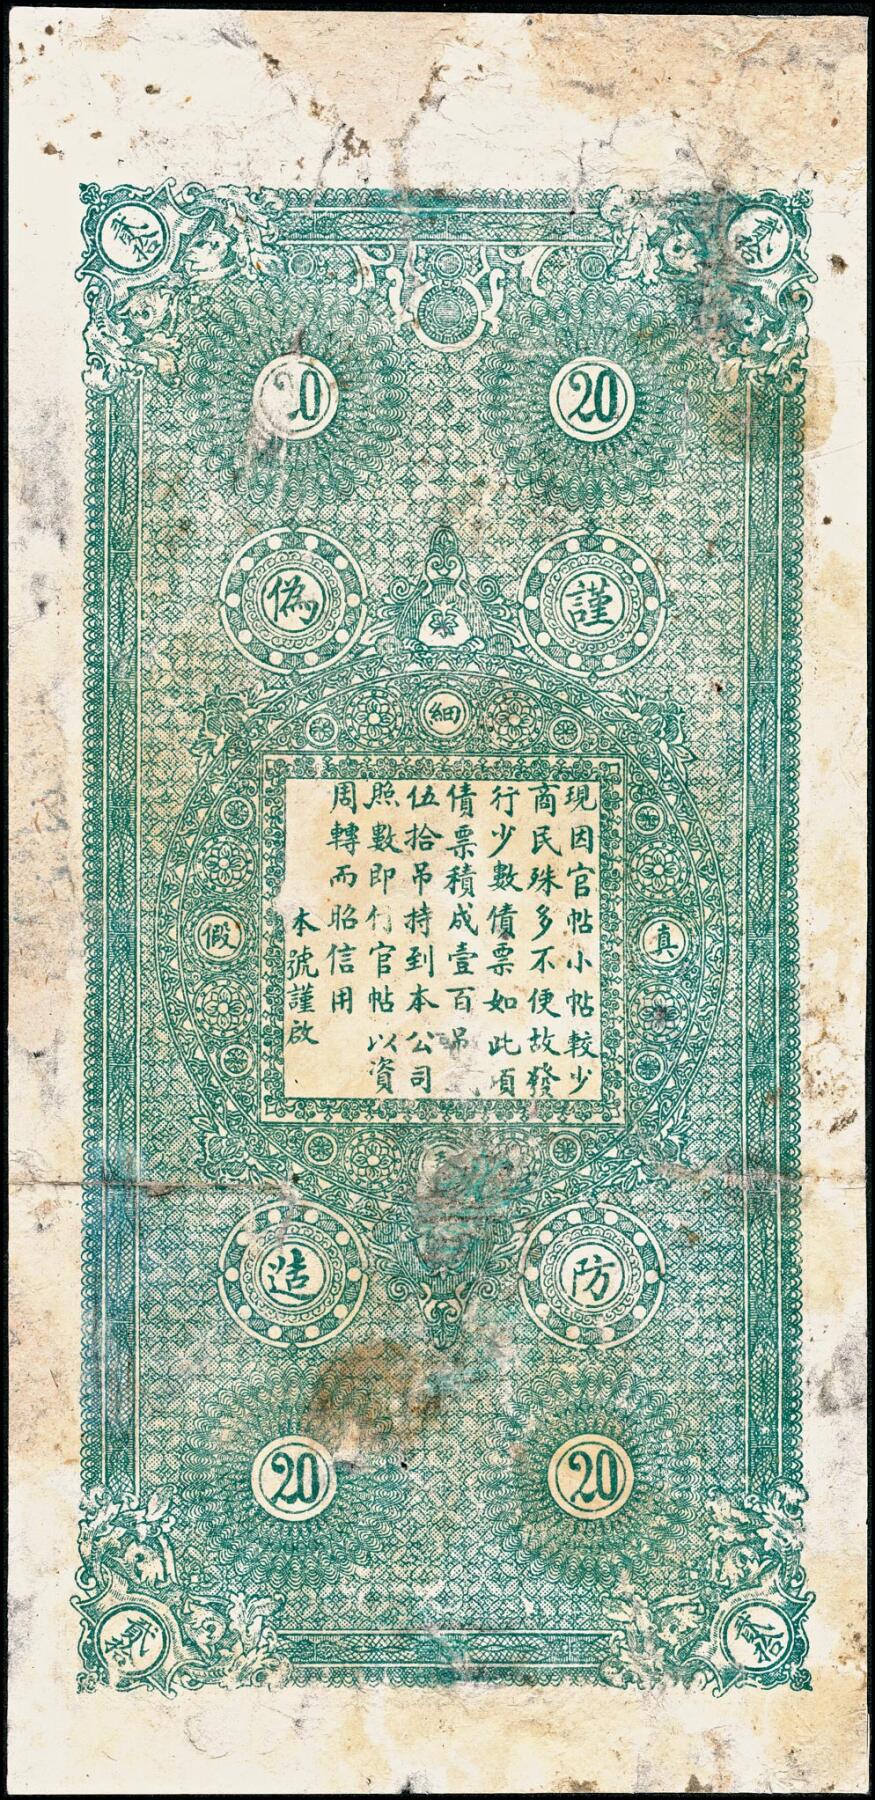 貳拾
貳拾
20
謹
防
偽
造
細
真
假
現因官帖小帖較少
商民殊多不便故發
行少數債票如此項
債票積成壹百吊
伍拾吊持到本公司
照數即付官帖以資
周轉而昭信用
本號謹啟
20
20
貳拾
貳拾